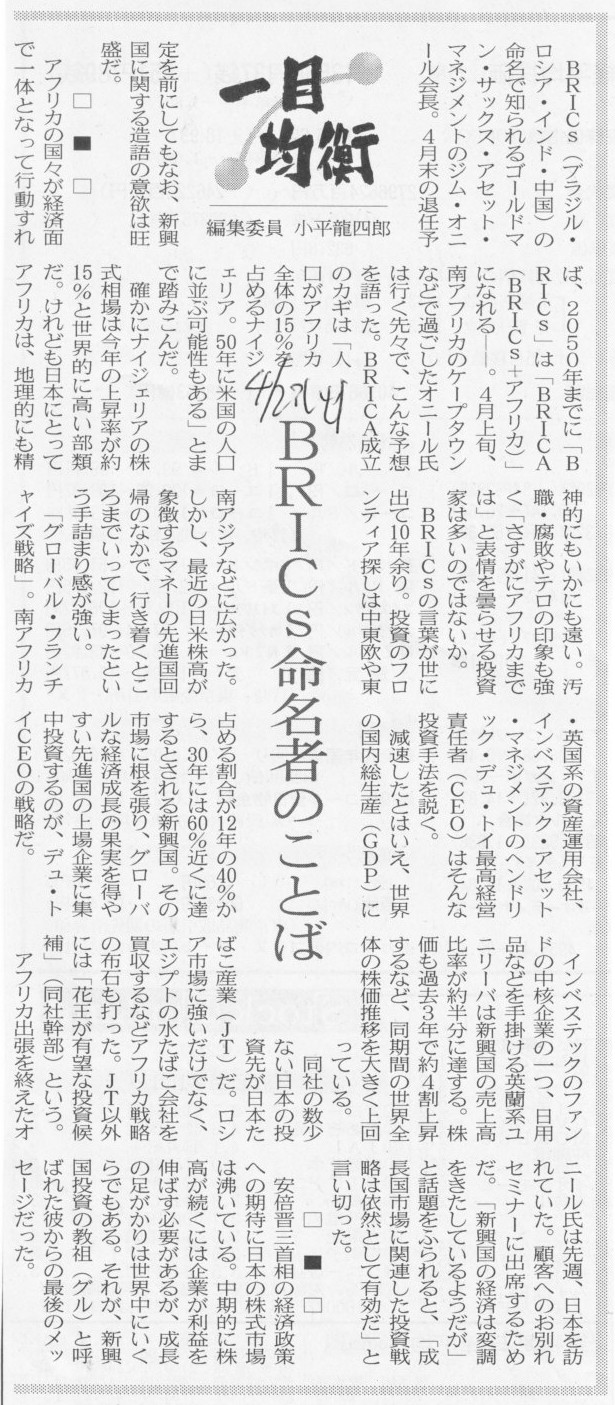 一目均衡
編集委員 小平龍四郎
BRICs命名者のことば
4/2
BRICs(ブラジル・
ロシア・インド・中国)の
命名で知られるゴールドマ
ン・サックス・アセット・
マネジメントのジム・オニ
ール会長。4月末の退任予
定を前にしてもなお、新興
国に関する造語の意欲は旺
盛だ。
□ ■ □
アフリカの国々が経済面
で一体となって行動すれ
ば、2050年までに「B
RICs」は「BRICA
(BRICs+アフリカ)」
になれる―。4月上旬、
南アフリカのケープタウン
などで過ごしたオニール氏
は行く先々で、こんな予想
を語った。BRICA成立
のカギは「人
口がアフリカ
全体の15%を
占めるナイジ
ェリア。50年に米国の人口
に並ぶ可能性もある」とま
で踏みこんだ。
確かにナイジェリアの株
式相場は今年の上昇率が約
15%と世界的に高い部類
だ。けれども日本にとって
アフリカは、地理的にも精
神的にもいかにも遠い。汚
職・腐敗やテロの印象も強
く、「さすがにアフリカまで
は」と表情を曇らせる投資
家は多いのではないか。
BRICsの言葉が世に
出て10年余り。投資のフロ
ンティア探しは中東欧や東
南アジアなどに広がった。
しかし、最近の日米株高が
象徴するマネーの先進国回
帰のなかで、行き着くとこ
ろまでいってしまったとい
う手詰まり感が強い。
「グローバル・フランチ
ャイズ戦略」。南アフリカ
・英国系の資産運用会社、
インベステック・アセット
・マネジメントのヘンドリ
ック・デュ・トイ最高経営
責任者(CEO)はそんな
投資手法を説く。
減速したとはいえ、世界
の国内総生産(GDP)に
占める割合が12年の40%か
ら、30年には60%近くに達
するとされる新興国。その
市場に根を張り、グローバ
ルな経済成長の果実を得や
すい先進国の上場企業に集
中投資するのが、デュ・ト
イCEOの戦略だ。
インベステックのファン
ドの中核企業の一つ、日用
品などを手掛ける英蘭系ユ
ニリーバは新興国の売上高
比率が約半分に達する。株
価も過去3年で約4割上昇
するなど、同期間の世界全
体の株価推移を大きく上回
っている。
同社の数少
ない日本の投
資先が日本た
ばこ産業(JT)だ。ロシ
ア市場に強いだけでなく、
エジプトの水たばこ会社を
買収するなどアフリカ戦略
の布石も打った。JT以外
には「花王が有望な投資候
補」(同社幹部)という。
アフリカ出張を終えたオ
ニール氏は先週、日本を訪
れていた。顧客へのお別れ
セミナーに出席するため
だ。「新興国の経済は変調
をきたしているようだが」
と話題をふられると、「成
長国市場に関連した投資戦
略は依然として有効だ」と
言い切った。
□ ■ □
安倍晋三首相の経済政策
への期待に日本の株式市場
は沸いている。中期的に株
高が続くには企業が利益を
伸ばす必要があるが、成長
の足がかりは世界中にいく
らでもある。それが、新興
国投資の教祖(グル)と呼
ばれた彼からの最後のメッ
セージだった。